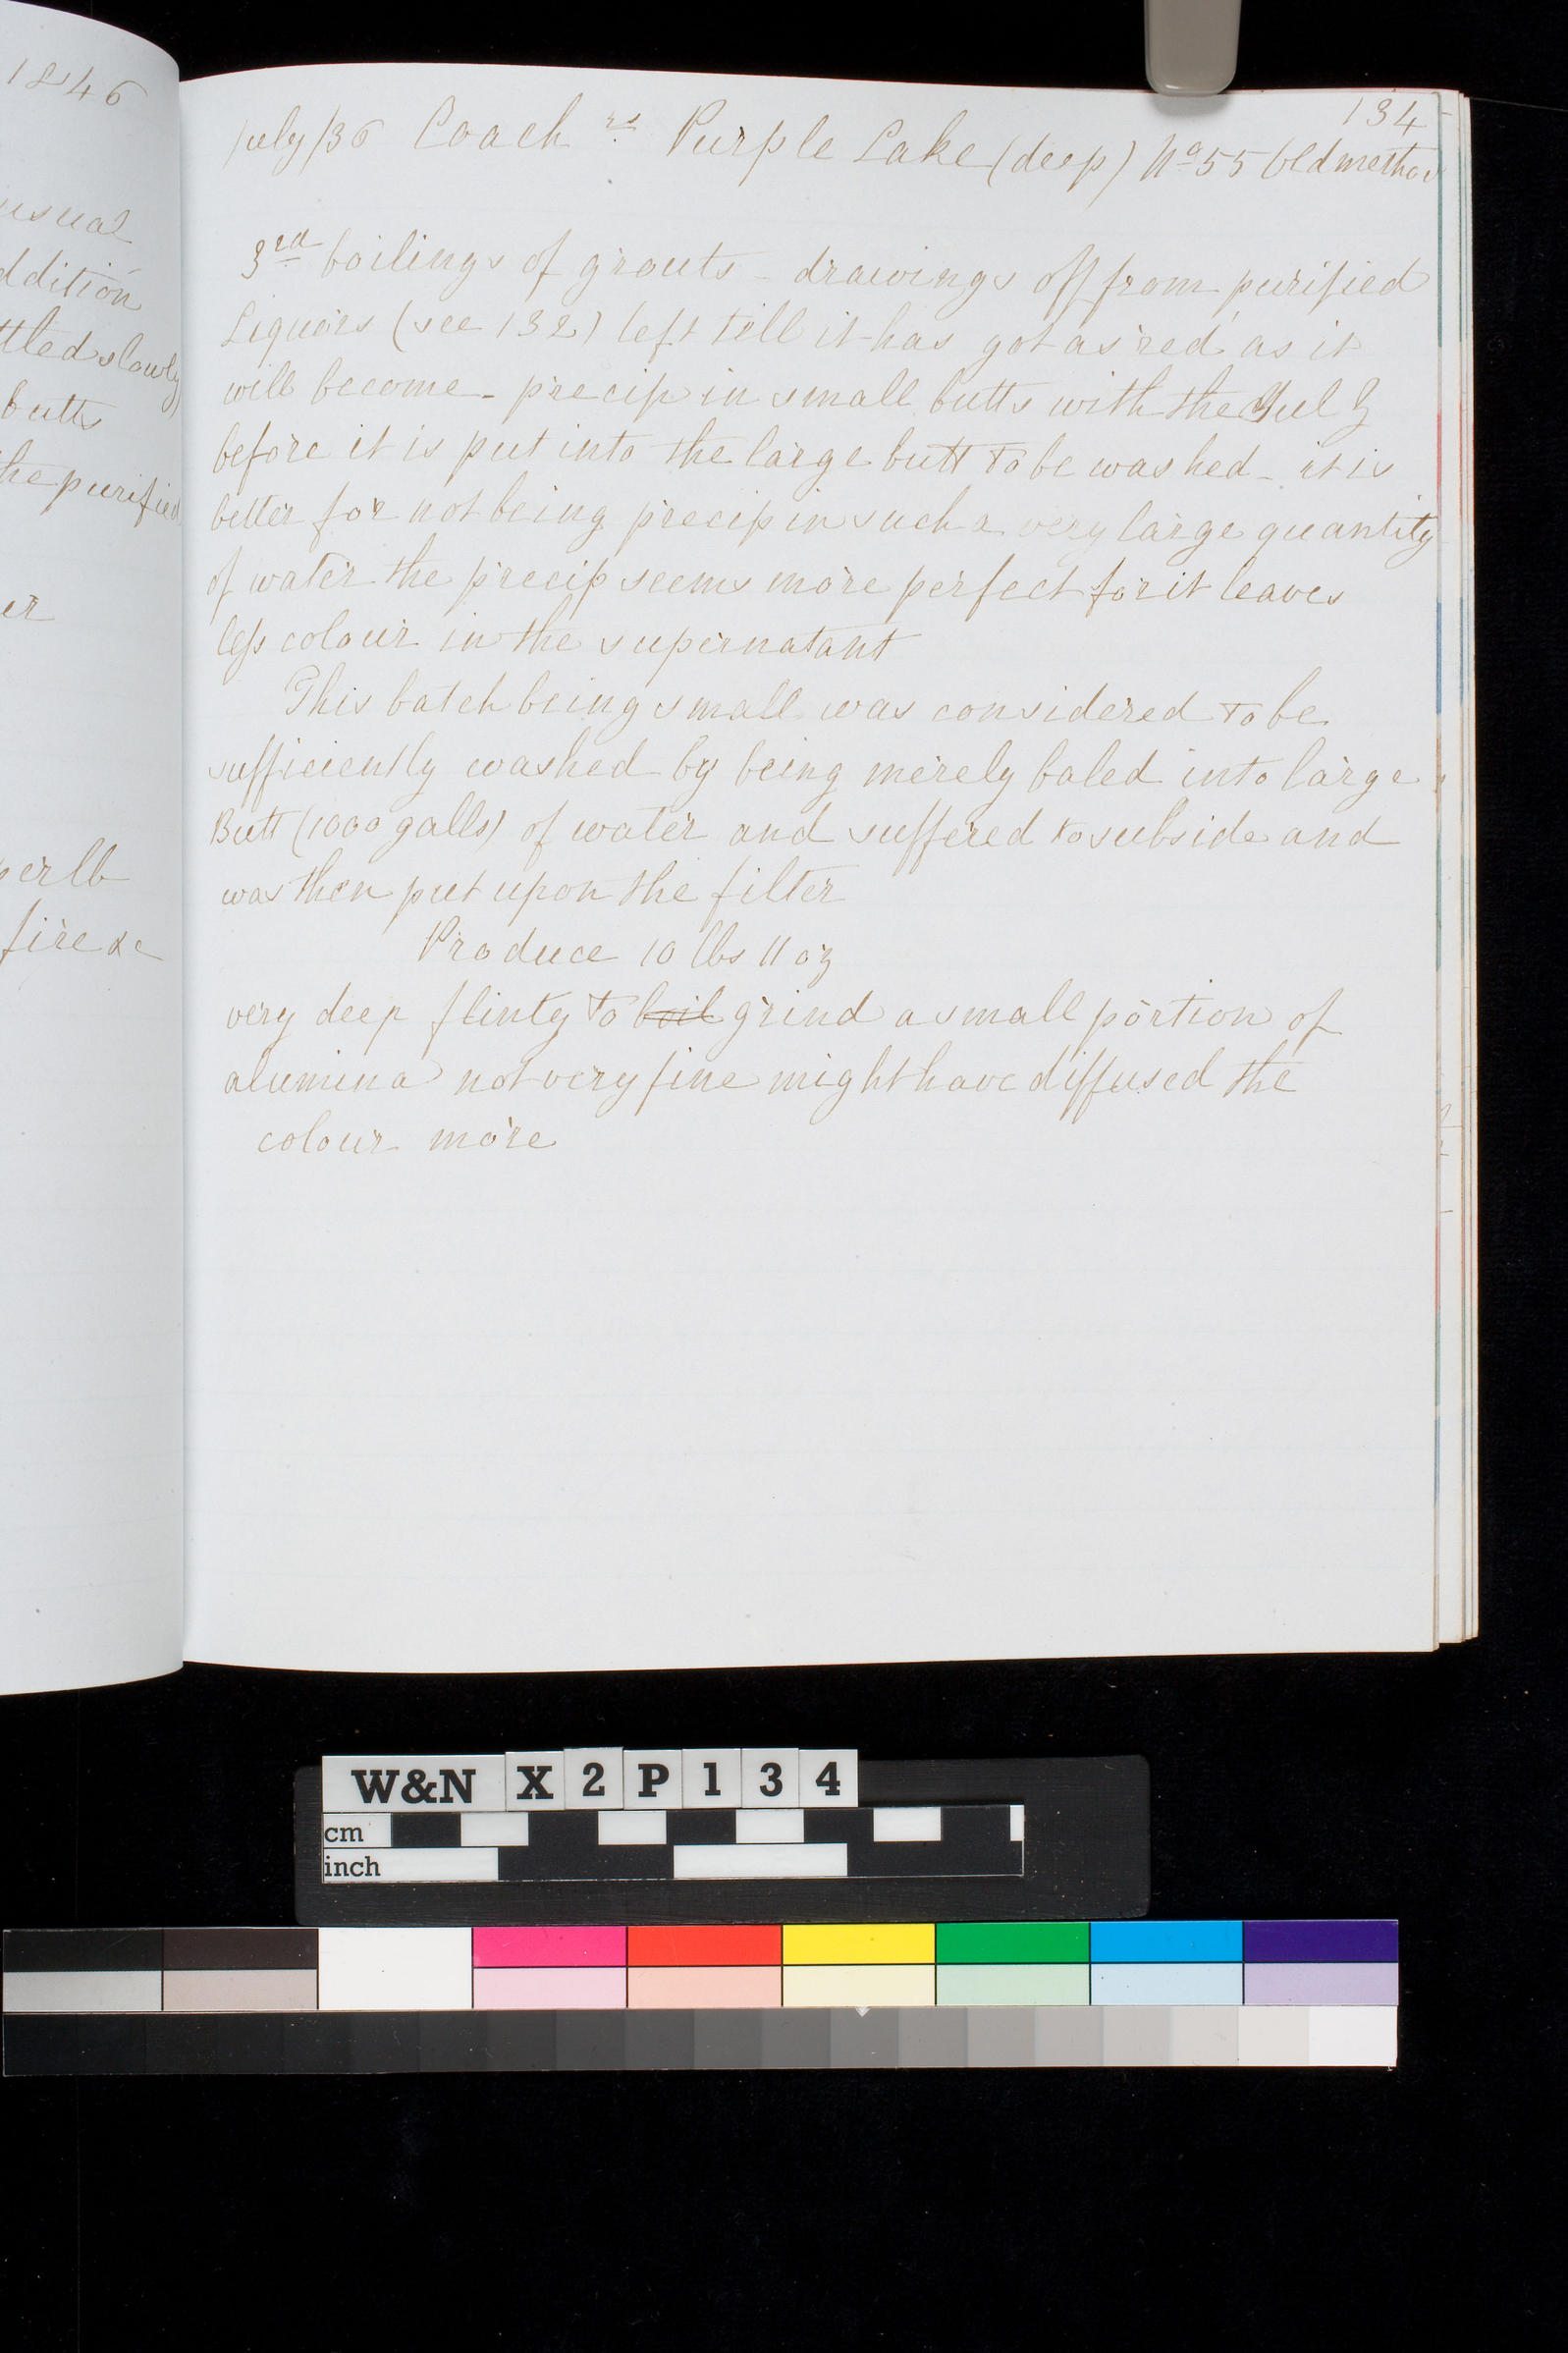 1846
usual
ddition
ttled slowly
butts
he purified
er
per lb
fire &c
134
July/36 Coach rs Purple Lake (deep) No 55 Old method
3rd boilings of grouts - drawings off from purified
Liquors (see 132) left till it has got as red as it
will become - precip in small butts with the Sul Z
before it is put into the large butt to be washed - it is
better for not being precip in such a very large quantity
of water the precip seems more perfect for it leaves
less colour in the supernatant
This batch being small was considered to be
sufficiently washed by being merely baled into large
Butt (1000 galls) of water and suffered to subside and
was then put upon the filter
Produce 10 lbs 11 oz
very deep flinty to boil grind a small portion of
alumina not very fine might have diffused the
colour more
W&N X2P134
cm
inch